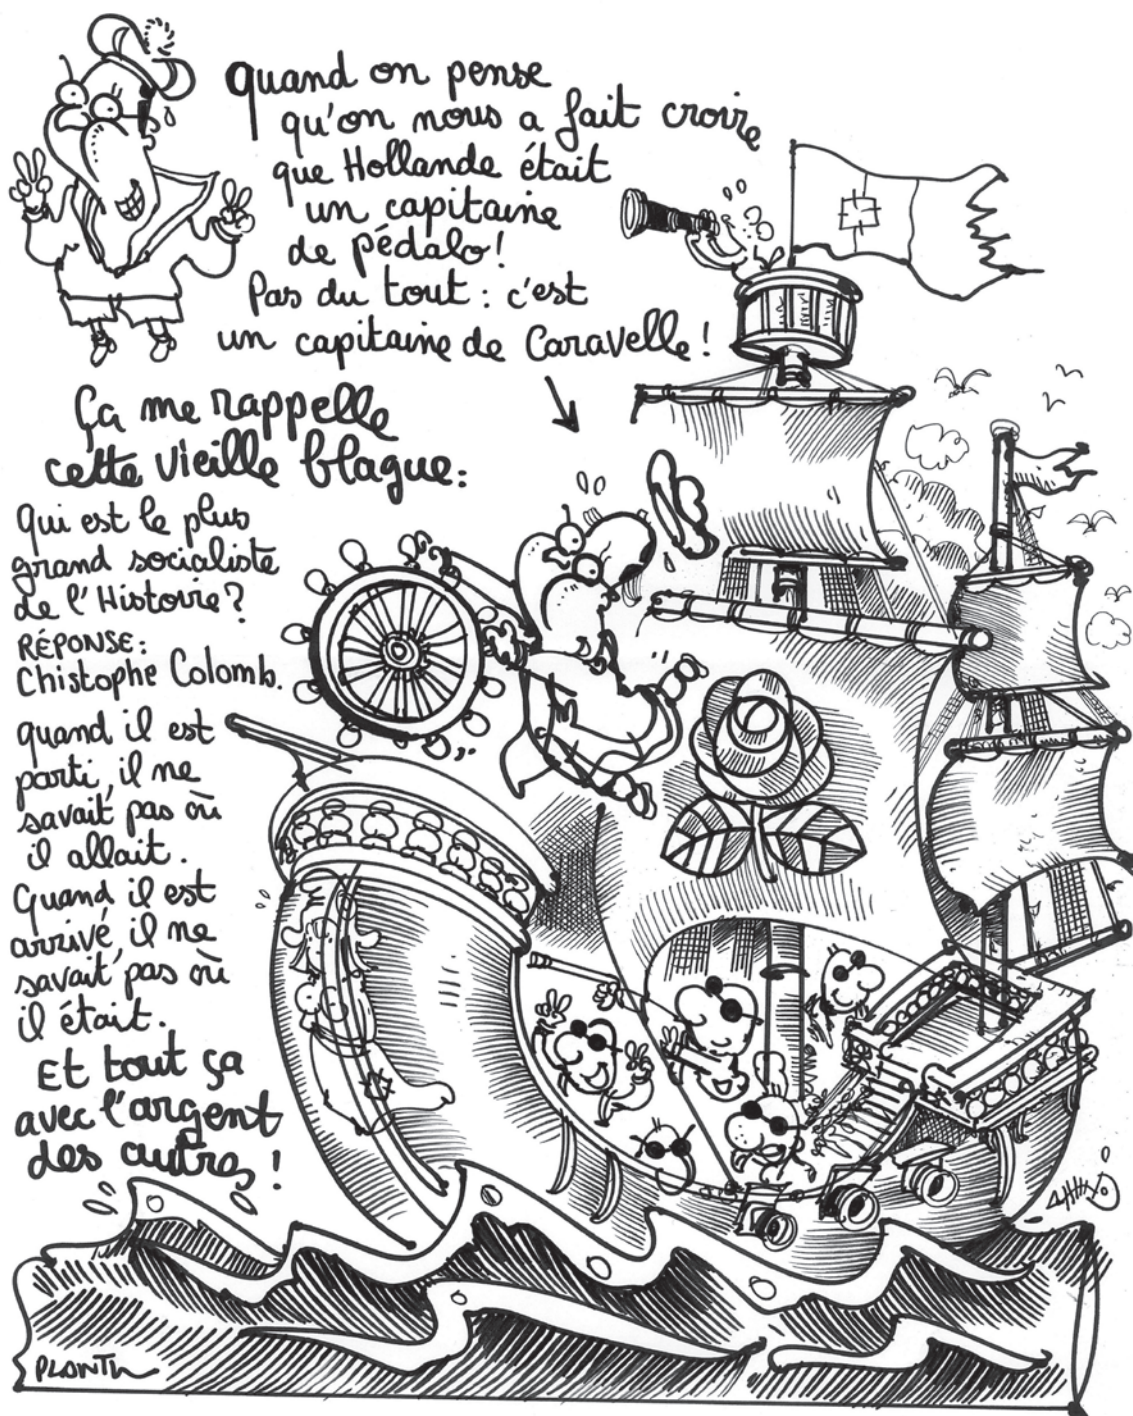 Quand on pense
qu'on nous a fait croire
que Hollande était
un capitaine
de pédalo!
Pas du tout : c'est
un capitaine de Caravelle !
Ça me rappelle
cette vieille blague :
Qui est le plus
grand socialiste
de l'Histoire ?
RÉPONSE :
Chistophe Colomb.
quand il est
parti, il ne
savait pas où
il allait.
Quand il est
arrivé, il ne
savait pas où
il était.
Et tout ça
avec l'argent
des autres !
PLANTU